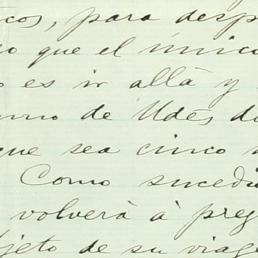 cos, para desp
o que el únic
o es ir allà y
smo de Udes d
que sea cinco
Como sucedi
volverà à preg
jeto de su viage